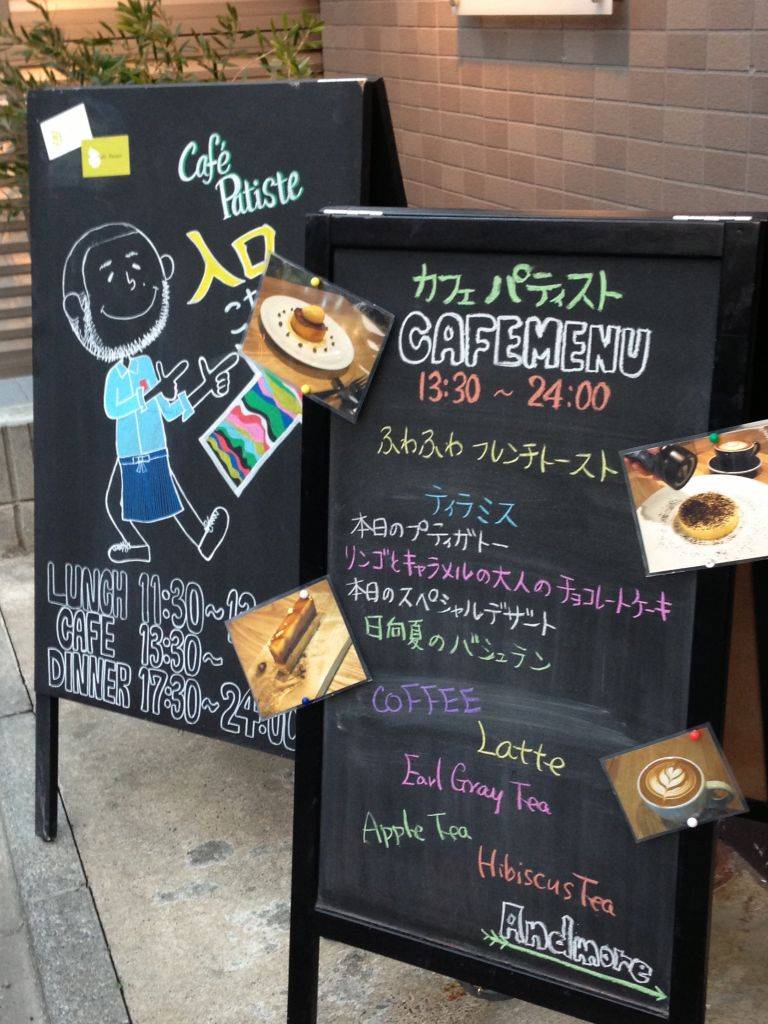 Café
Patiste
入口
LUNCH 11:30~
CAFE 13:30~
DINNER 17:30~24:00
カフェ パティスト
CAFEMENU
13:30 ~ 24:00
ふわふわ フレンチトースト
ティラミス
本日のプティガトー
リンゴとキャラメルの大人のチョコレートケーキ
本日のスペシャルデザート
日向夏のバシュラン
COFFEE
Latte
Earl Gray Tea
Apple Tea
Hibiscus Tea
Andmore